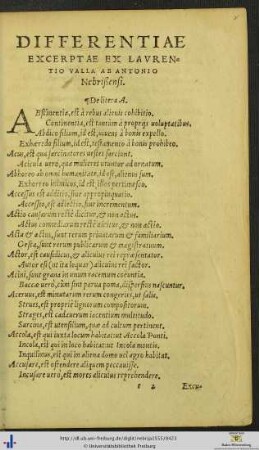 DIFFERENTIAE
EXCERPTAE EX LAVREN-
TIO VALLA AB ANTONIO
Nebrissensi.
¶De litera A.
ABstinentia, est à rebus alienis cohibitio.
Continentia, est tantùm à proprijs voluptatibus.
Abdico filium, id est, viuens à bonis expello.
Exhæredo filium, id est, testamento à bonis prohibeo.
Acus, est qua sarcinatores vestes sarciunt.
Acicula verò, qua mulieres vtuntur ad ornatum.
Abhorreo ab omni humanitate, id est, alienus sum.
Exhorreo inimicos, id est, illos pertimesco.
Accessus est additus, siue appropinquatio.
Accessio, est adiectio, siue incrementum.
Actio causarum rectè dicitur, & non actus.
Actus comœdiarum rectè dicitur, & non actio.
Acta & actus, sunt rerum priuatarum & familiarium.
Gesta, sunt rerum publicarum & magistratuum.
Actor, est causidicus, & alicuius rei repræsentator.
Autor est (vt ita loquar) alicuius rei factor.
Acini, sunt grana in vuam racemum coeuntia.
Baccæ verò, cùm sint parua poma, dispersius nascuntur.
Aceruus, est minutarum rerum congeries, vt salis.
Strues, est propriè lignorum compositorum.
Strages, est cadauerum iacentium multitudo.
Sarcina, est vtensilium, quæ ad cultum pertinent.
Accola, est qui iuxta locum habitat: vt Accola Ponti.
Incola, est qui in loco habitat: vt Incola montis.
Inquilinus, est qui in aliena domo vel agro habitat.
Accusare, est ostendere aliquem peccauisse.
Incusare verò, est mores alicuius reprehendere.
Excu-
http://dl.ub.uni-freiburg.de/diglit/
© Universitätsbibliothek Freiburg